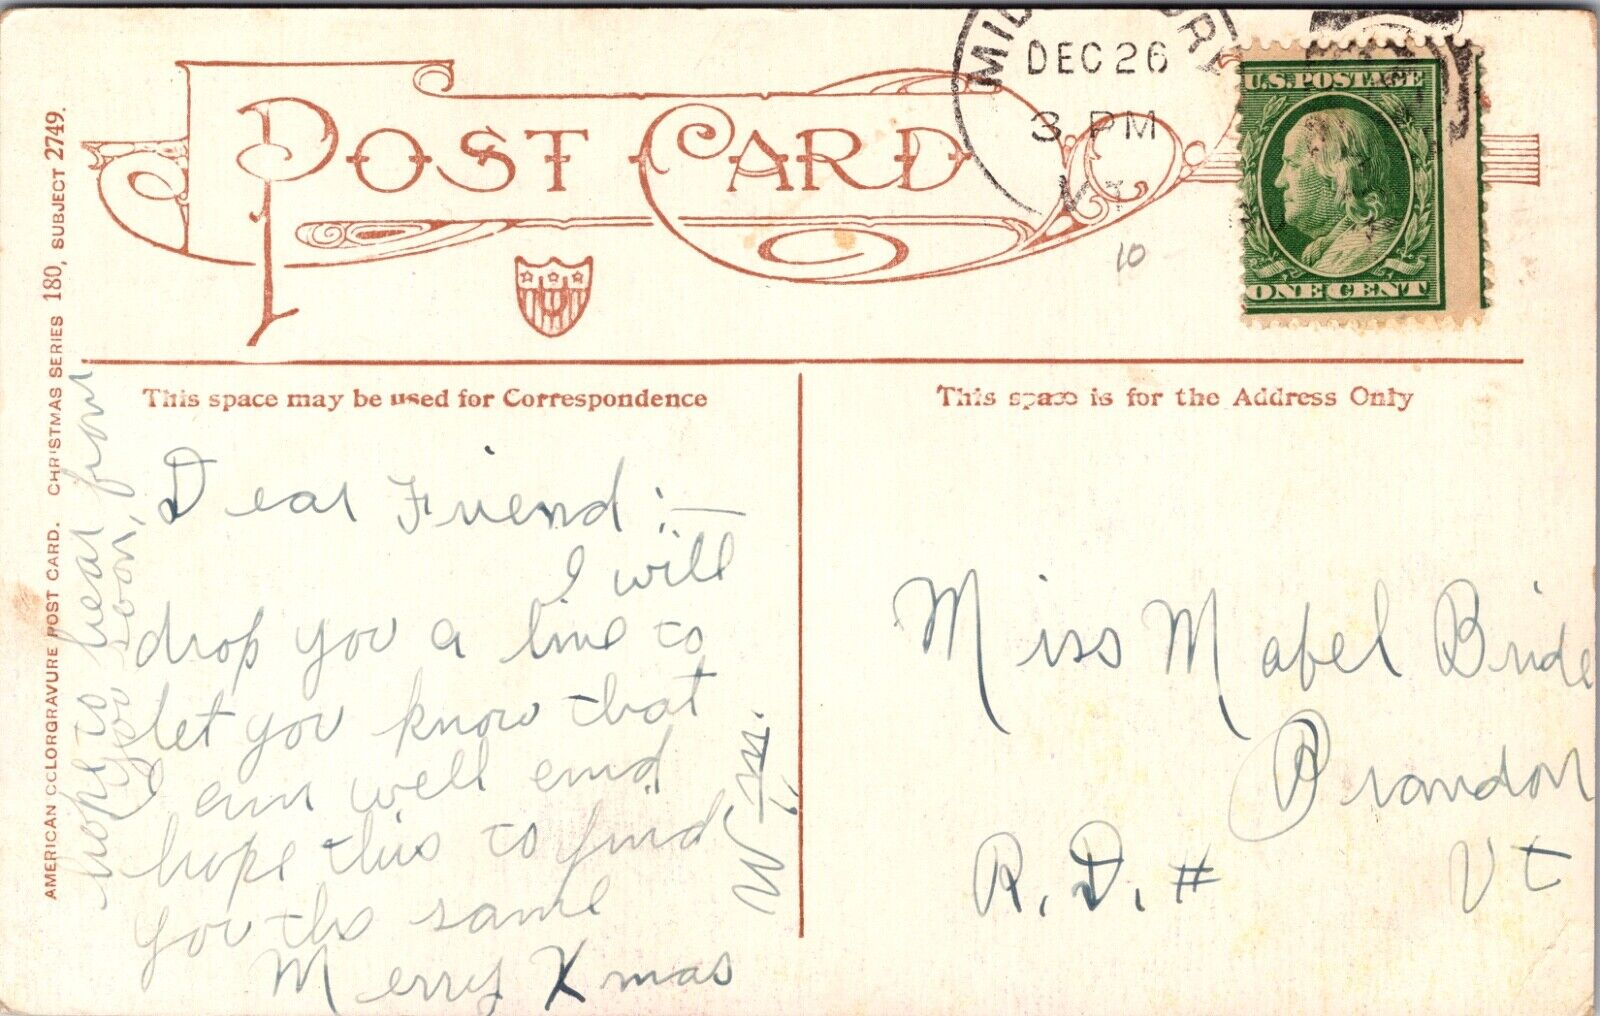 POST CARD
DEC 26
3 PM
U.S. POSTAGE
ONE CENT
10
AMERICAN COLORGRAVURE POST CARD. CHRISTMAS SERIES 180, SUBJECT 2749.
This space may be used for Correspondence
This space is for the Address Only
Dear Friend:—
I will
drop you a line to
let you know that
I am well and
hope this to find
you the same
Merry Xmas
hope to hear from
you soon,
Miss Mabel Bride
Brandon
R. D. # Vt